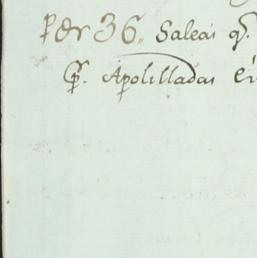 Per 36. Saleas q.
Apolilladas en